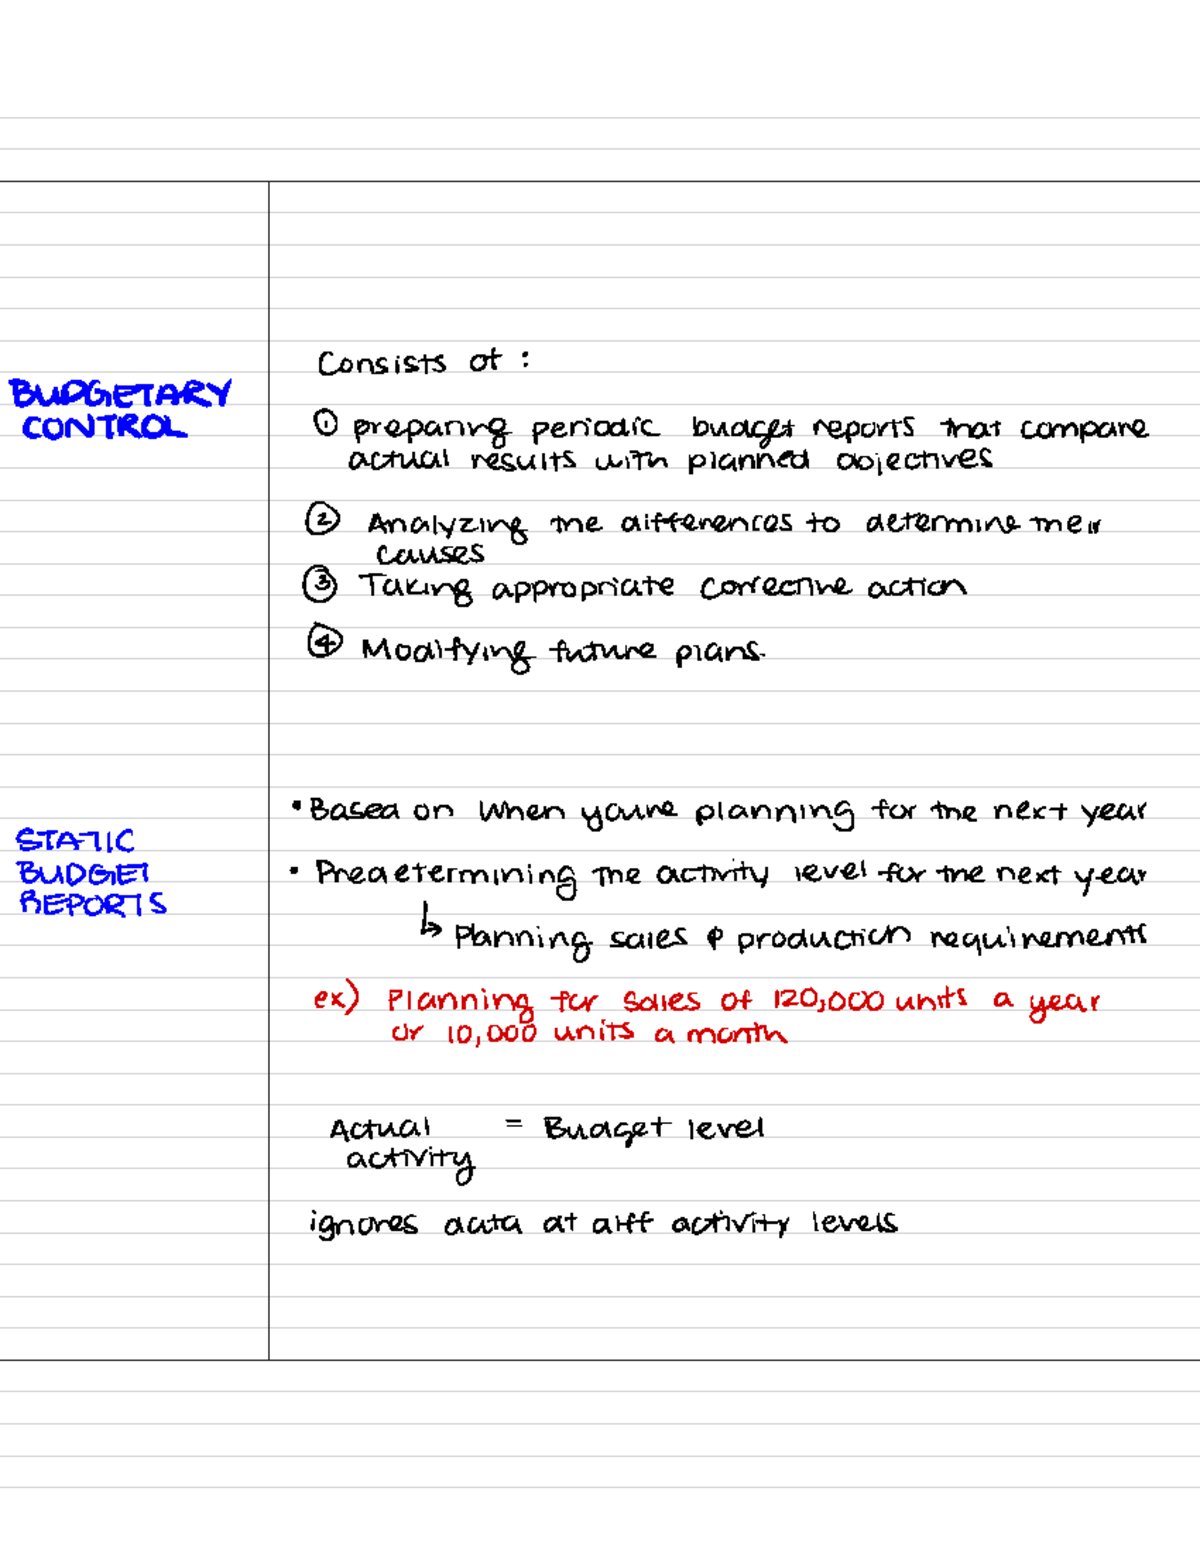 Consists of :
BUDGETARY
CONTROL
① preparing periodic budget reports that compare
actual results with planned objectives
② Analyzing the differences to determine their
causes
③ Taking appropriate corrective action
④ Modifying future plans.
• Based on when you're planning for the next year
STATIC
BUDGET
REPORTS
• Predetermining the activity level for the next year
↳ Planning sales & production requirements
ex) Planning for sales of 120,000 units a year
or 10,000 units a month
Actual = Budget level
activity
ignores data at diff activity levels